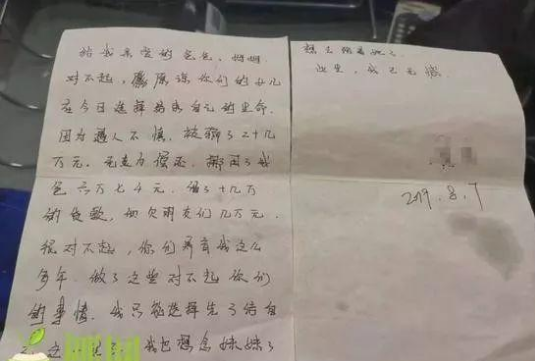 给我亲爱的爸爸、妈妈
对不起，原谅你们的女儿
在今日选择结束自己的生命.
因为遇人不慎，被骗了二十几
万元. 无力偿还.
万七千元. 十几万
的贷款，欠朋友们几万元.
很对不起，你们养育我这么
多年. 做了这些对不起你们
的事情. 我只能选择先了结自
我也想念妹妹了
想
此生，我已无憾.
2019.8.7